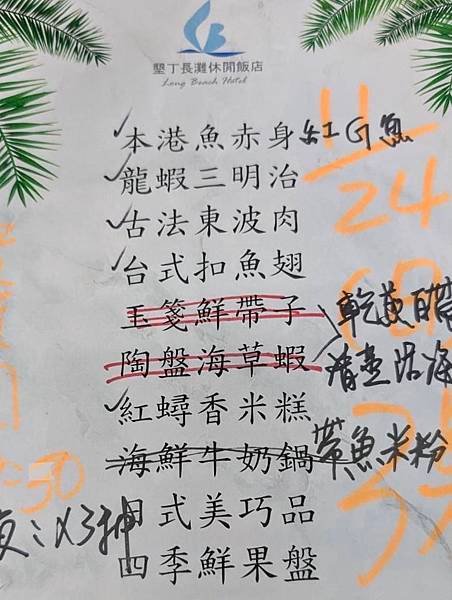 墾丁長灘休閒飯店
Long Beach Hotel
本港魚赤身 紅G魚
龍蝦三明治
古法東波肉
台式扣魚翅
玉箋鮮帶子
陶盤海草蝦
紅蟳香米糕
海鮮牛奶鍋 帶魚米粉
日式美巧品
四季鮮果盤
11
24